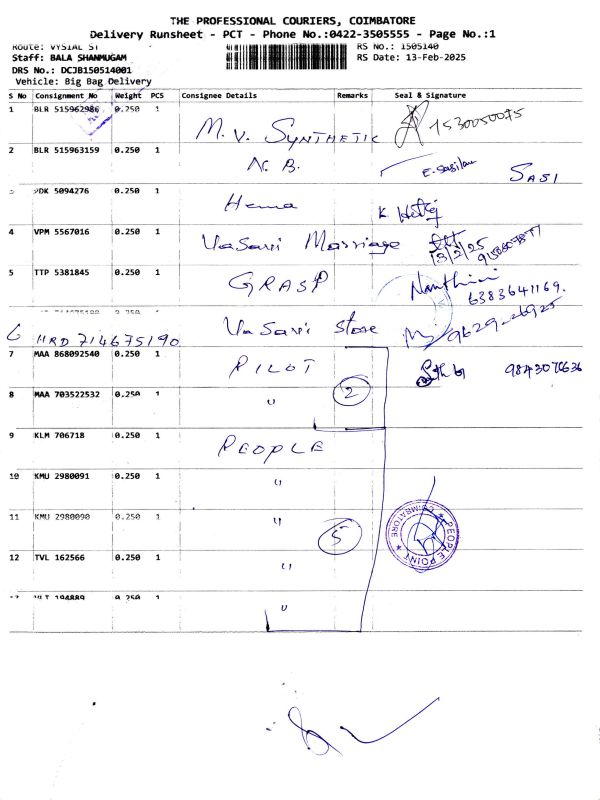 THE PROFESSIONAL COURIERS, COIMBATORE
Delivery Runsheet - PCT - Phone No.:0422-3505555 - Page No.:1
Route: VYSIAL ST RS No.: 1505140
Staff: BALA SHANMUGAM RS Date: 13-Feb-2025
DRS No.: DCJB150514001
Vehicle: Big Bag Delivery
S No Consignment No Weight PCS Consignee Details Remarks Seal & Signature
1 BLR 515962986 0.250 1 M. V. SYNTHETIC
2 BLR 515963159 0.250 1 N. B. SASI
PDK 5094276 0.250 1 Hema
4 VPM 5567016 0.250 1 VaSavi Marriage 13/2/25
5 TTP 5381845 0.250 1 GRASP 6383641169.
6 HRD 714675190 VaSavi Store
7 MAA 868092540 0.250 1 PILOT 9843076636
8 MAA 703522532 0.250 1 " 2
9 KLM 706718 0.250 1 PEOPLE
10 KMU 2980091 0.250 1 "
11 KMU 2980090 0.250 1 " 5
PEOPLE POINT * COIMBATORE *
12 TVL 162566 0.250 1 "
194889 0.250 1 "